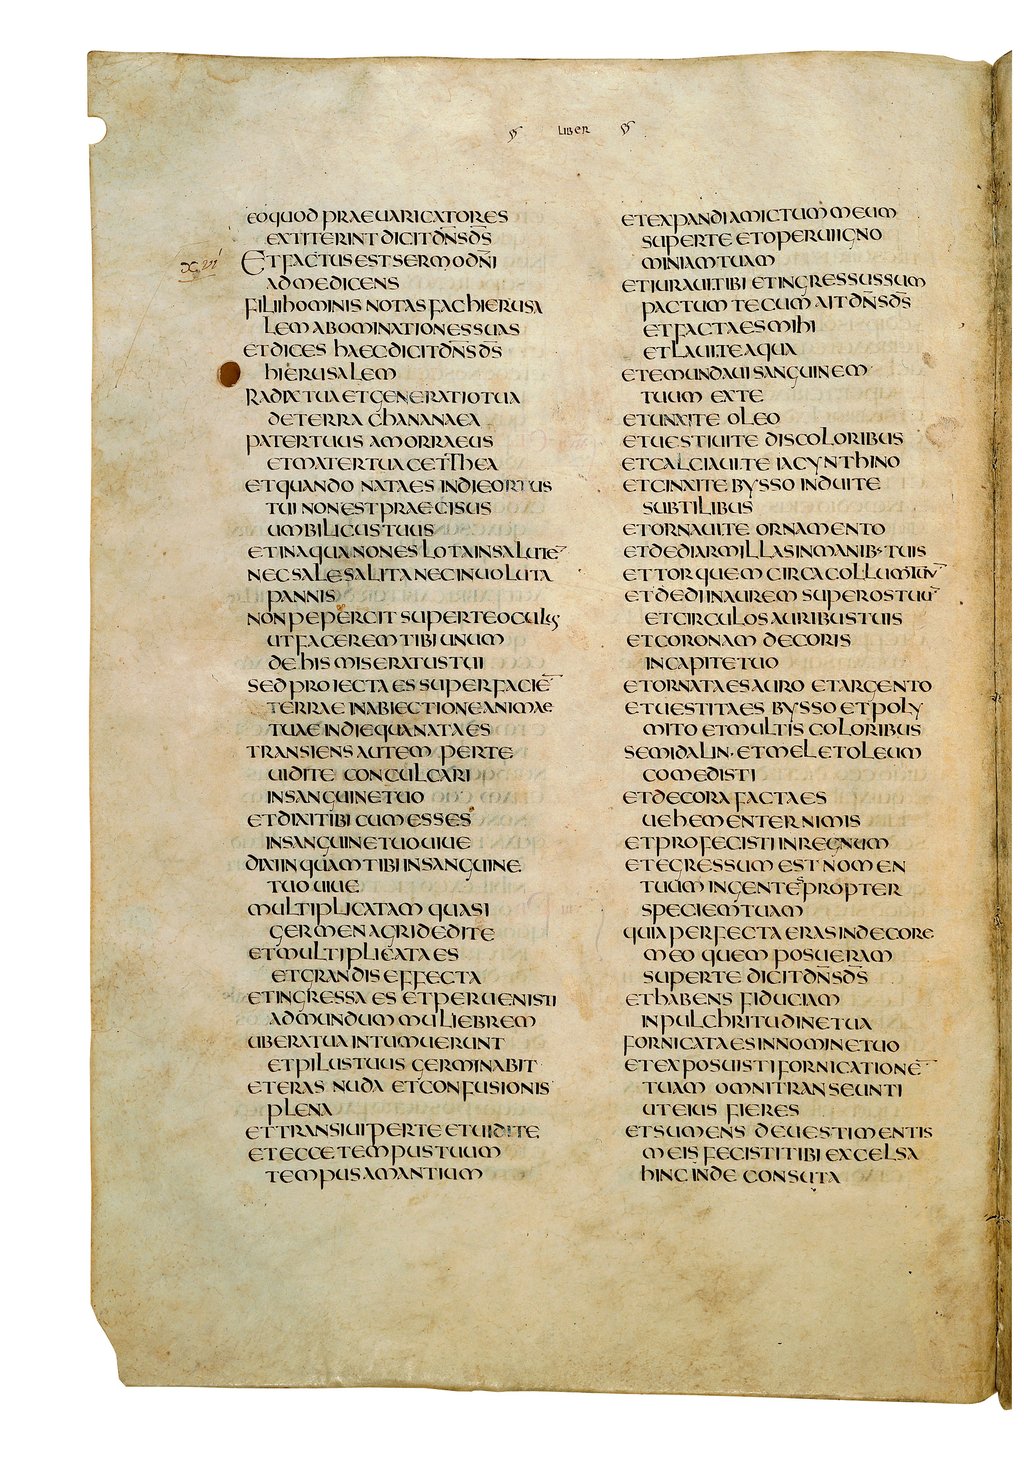 LIBER
EO QUOD PRAEUARICATORES
EXTITERINT DICIT DN̄S D̄S
xvi
ET FACTUS EST SERMO DN̄I
AD ME DICENS
FILI HOMINIS NOTAS FAC HIERUSA
LEM ABOMINATIONES SUAS
ET DICES HAEC DICIT DN̄S D̄S
HIERUSALEM
RADIX TUA ET GENERATIO TUA
DE TERRA CHANANAEA
PATER TUUS AMORRAEUS
ET MATER TUA CETTHEA
ET QUANDO NATA ES IN DIE ORTUS
TUI NON EST PRAECISUS
UMBILICUS TUUS
ET IN AQUA NON ES LOTA IN SALUTE̅
NEC SALE SALITA NEC INUOLUTA
PANNIS
NON PEPERCIT SUPER TE OCULUS
UT FACEREM TIBI UNUM
DE HIS MISERATUS TUI
SED PROIECTA ES SUPER FACIE̅
TERRAE IN ABIECTIONE ANIMAE
TUAE IN DIE QUA NATA ES
TRANSIENS AUTEM PER TE
UIDI TE CONCULCARI
IN SANGUINE TUO
ET DIXI TIBI CUM ESSES
IN SANGUINE TUO UIUE
DIXI INQUAM TIBI IN SANGUINE
TUO UIUE
MULTIPLICATAM QUASI
GERMEN AGRI DEDI TE
ET MULTIPLICATA ES
ET GRANDIS EFFECTA
ET INGRESSA ES ET PERUENISTI
AD MUNDUM MULIEBREM
UBERA TUA INTUMUERUNT
ET PILUS TUUS GERMINABIT
ET ERAS NUDA ET CONFUSIONIS
PLENA
ET TRANSIUI PER TE ET UIDI TE
ET ECCE TEMPUS TUUM
TEMPUS AMANTIUM
ET EXPANDI AMICTUM MEUM
SUPER TE ET OPERUI IGNO
MINIAM TUAM
ET IURAUI TIBI ET INGRESSUS SUM
PACTUM TECUM AIT DN̄S D̄S
ET FACTA ES MIHI
ET LAUI TE AQUA
ET EMUNDAUI SANGUINEM
TUUM EX TE
ET UNXI TE OLEO
ET UESTIUI TE DISCOLORIBUS
ET CALCIAUI TE IACYNTHINO
ET CINXI TE BYSSO INDUI TE
SUBTILIBUS
ET ORNAUI TE ORNAMENTO
ET DEDI ARMILLAS IN MANIB· TUIS
ET TORQUEM CIRCA COLLUM TUU̅
ET DEDI INAUREM SUPER OS TUU̅
ET CIRCULOS AURIBUS TUIS
ET CORONAM DECORIS
IN CAPITE TUO
ET ORNATA ES AURO ET ARGENTO
ET UESTITA ES BYSSO ET POLY
MITO ET MULTIS COLORIBUS
SEMIDALIN· ET MEL ET OLEUM
COMEDISTI
ET DECORA FACTA ES
UEHEMENTER NIMIS
ET PROFECISTI IN REGNUM
ET EGRESSUM EST NOMEN
TUUM IN GENTES PROPTER
SPECIEM TUAM
QUIA PERFECTA ERAS IN DECORE
MEO QUEM POSUERAM
SUPER TE DICIT DN̄S D̄S
ET HABENS FIDUCIAM
IN PULCHRITUDINE TUA
FORNICATA ES IN NOMINE TUO
ET EXPOSUISTI FORNICATIONE̅
TUAM OMNI TRANSEUNTI
UT EIUS FIERES
ET SUMENS DE UESTIMENTIS
MEIS FECISTI TIBI EXCELSA
HINC INDE CONSUTA